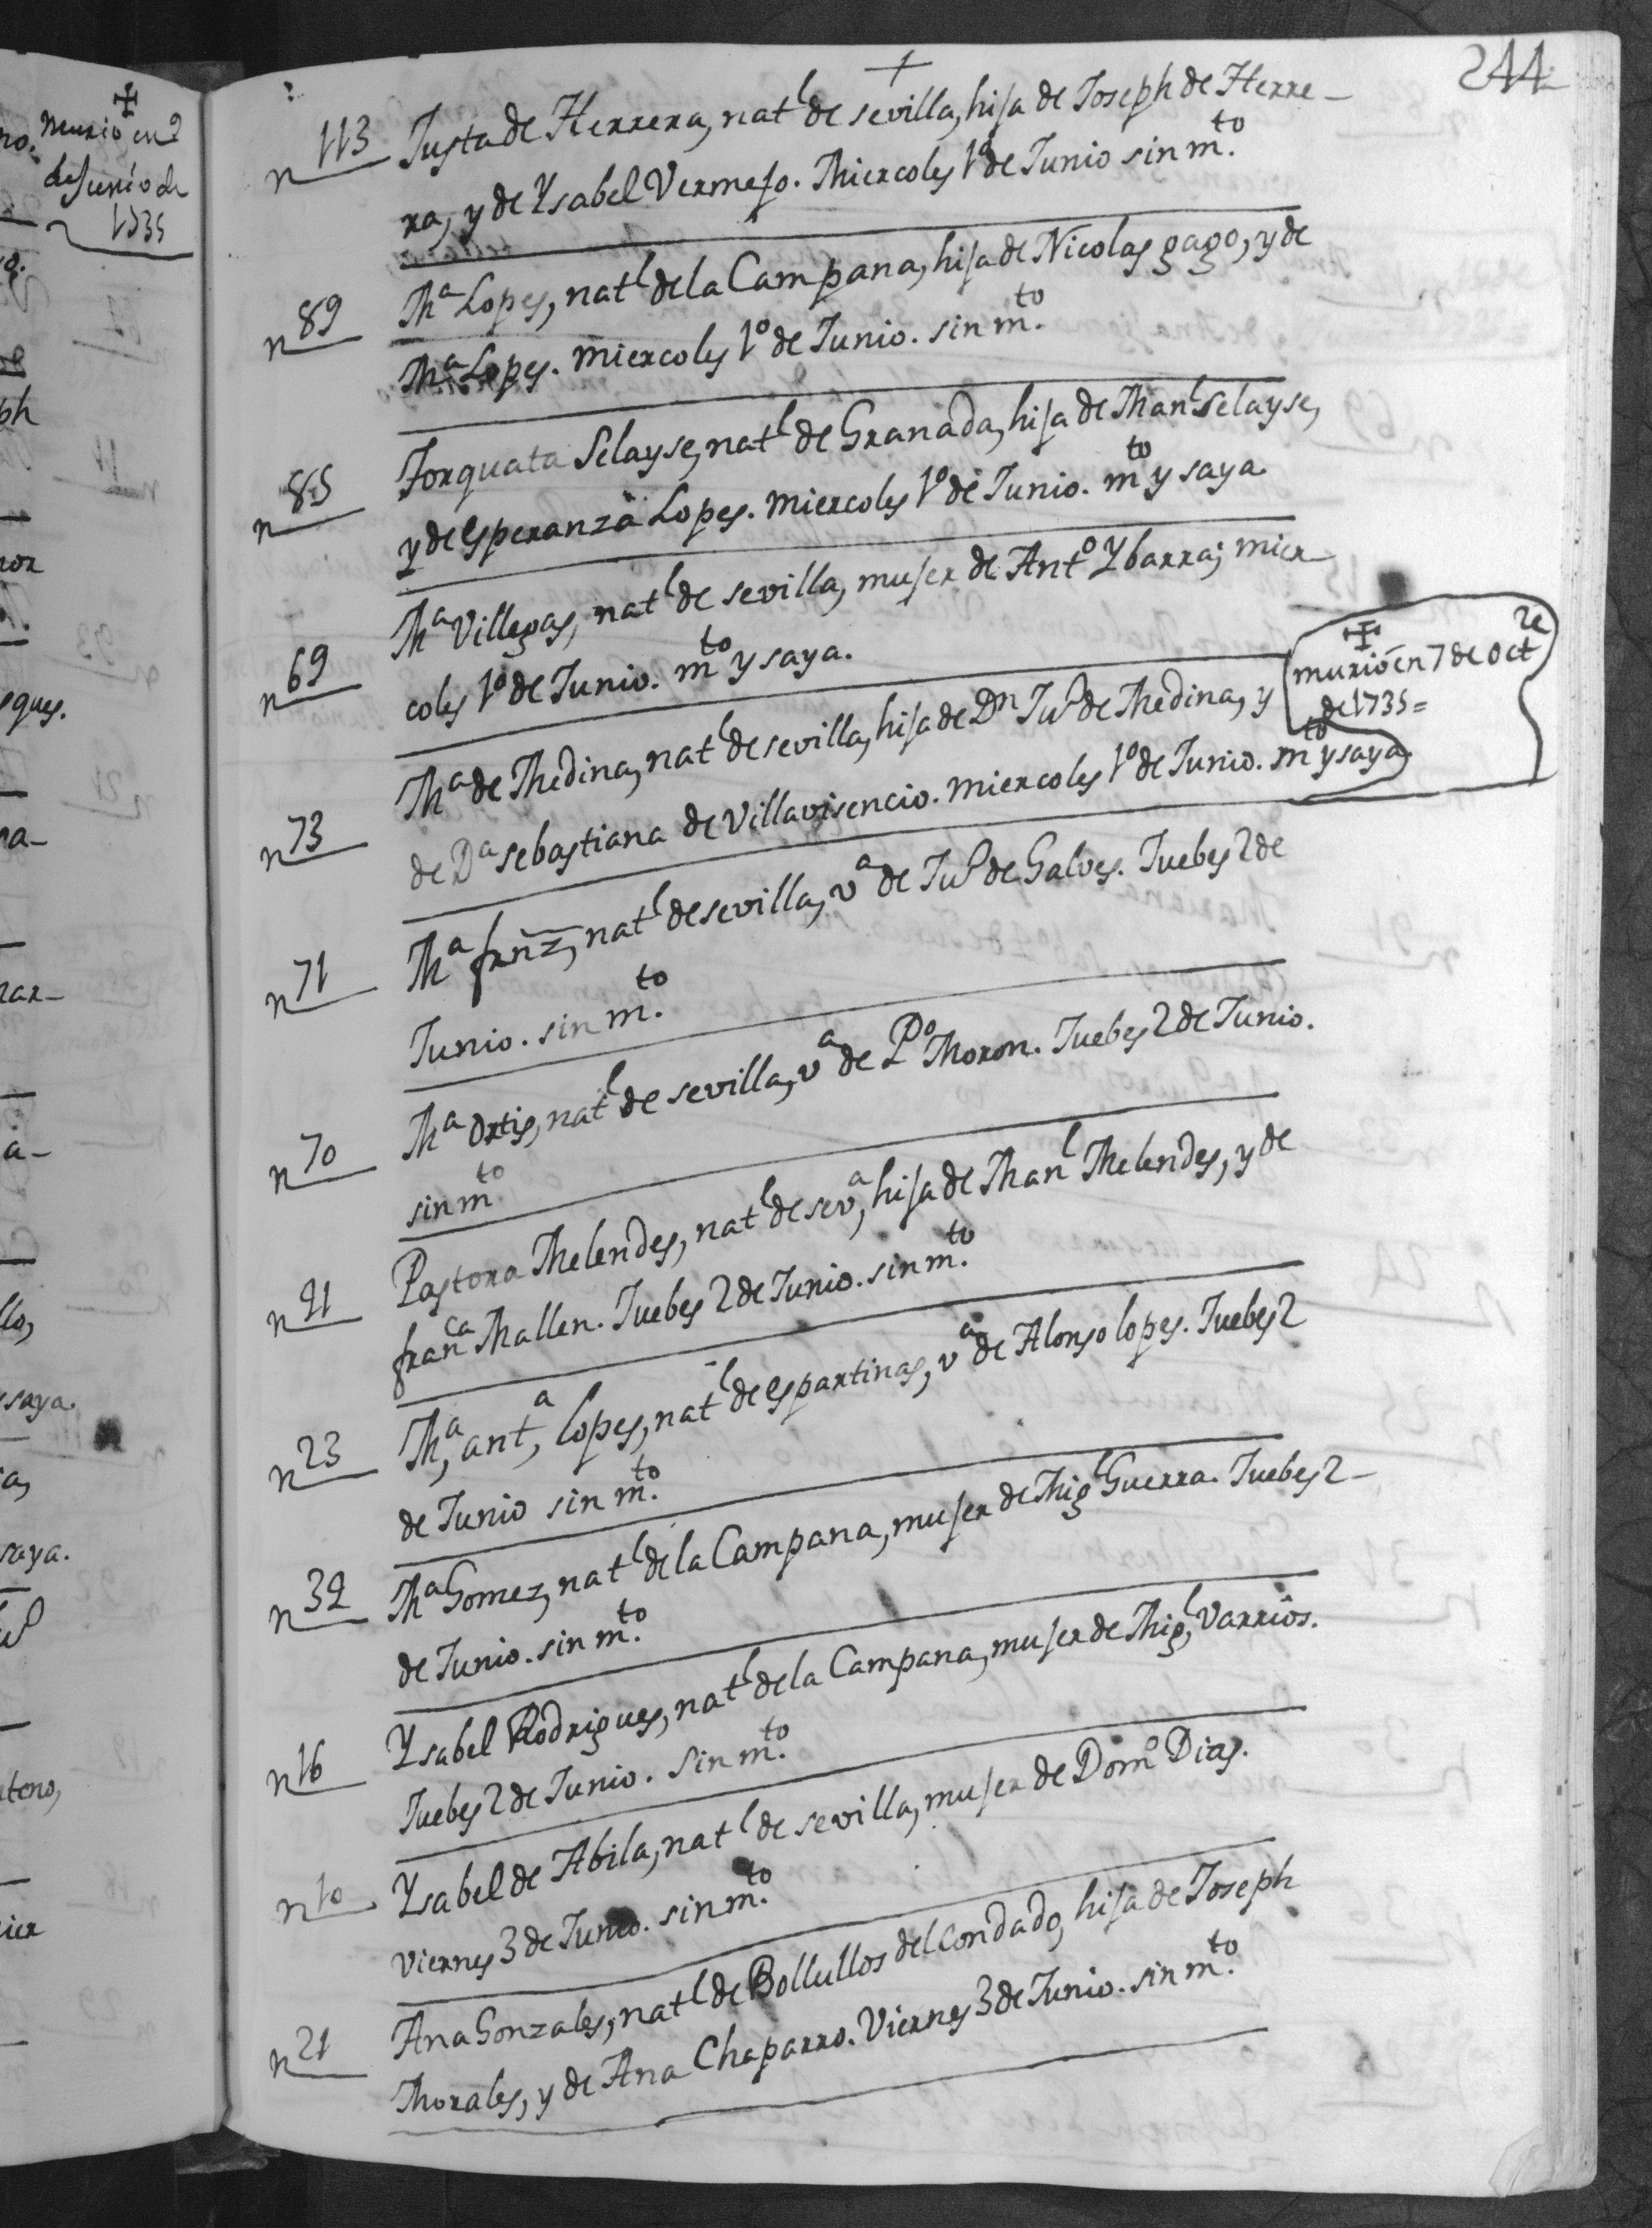 244
+
n 113 Justa de Herrera, nat.l de sevilla, hija de Joseph de Herre-
ra, y de Ysabel Vermejo. Miercoles 1º de Junio sin m.to
n 89 M.a Lopes, nat.l de la Campana, hija de Nicolas gago, y de
M.a Lopes. miercoles 1º de Junio. sin m.to
n 85 Torquata Selayse, nat.l de Granada, hija de Man.l Selayse,
y de esperanza Lopes. miercoles 1º de Junio. m.to y saya
n 69 M.a Villegas, nat.l de sevilla, mujer de Ant.o Ybarra; mier
coles 1º de Junio. m.to y saya.
murió en 7 de Oct.re
de 1735=
n 73 M.a de Medina, nat.l de sevilla, hija de D.n Ju.o de Medina, y
de D.a sebastiana de Villavisencio. miercoles 1º de Junio. m.to y saya
n 71 M.a frñz, nat.l de sevilla, v.a de Ju.o de Galves. Juebes 2 de
Junio. sin m.to
n 70 M.a Ortis, nat.l de sevilla, v.a de P.o Moron. Juebes 2 de Junio.
sin m.to
n 91 Pastora Melendes, nat.l de sev.a, hija de Man.l Melendes, y de
fran.ca Mallen. Juebes 2 de Junio. sin m.to
n 23 M.a, ant.a, lopes, nat.l de espartinas, v.a de Alonso lopes. Juebes 2
de Junio sin m.to
n 32 M.a Gomez, nat.l de la Campana, mujer de Mig.l Guerra. Juebes 2-
de Junio. sin m.to
n 16 Ysabel Rodrigues, nat.l de la Campana, mujer de Mig.l, Varrios.
Juebes 2 de Junio. Sin m.to
n 10 Ysabel de Abila, nat.l de sevilla, mujer de Dom.o Dias.
Viernes 3 de Junio. sin m.to
n 21 Ana Gonzales, nat.l de Bollullos del condado, hija de Joseph
Morales, y de Ana Chaparro. Viernes 3 de Junio. sin m.to
murió en 2
de Junio de
1735